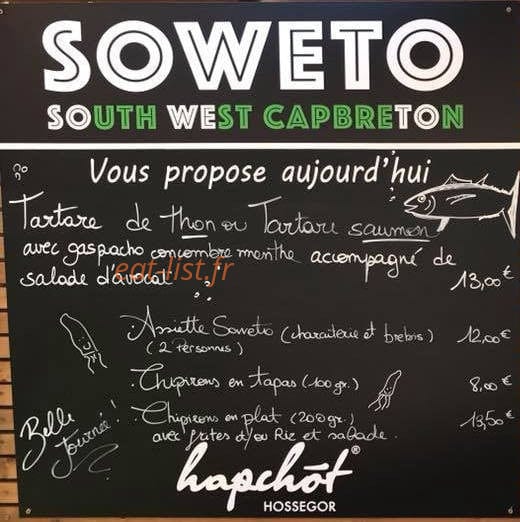 SOWETO
SOUTH WEST CAPBRETON
Vous propose aujourd'hui
Tartare de thon ou Tartare saumon
avec gaspacho concombre menthe accompagné de
salade d'avocat 13,00€
eat-list.fr
. Assiette Soweto (charcuterie et brebis) 12,00€
(2 Personnes)
. Chipirons en tapas (100gr.) 8,00€
. Chipirons en plat (200gr.) 13,50€
avec frites d/ou Riz et salade.
Belle
Journée !
hapchōt®
HOSSEGOR